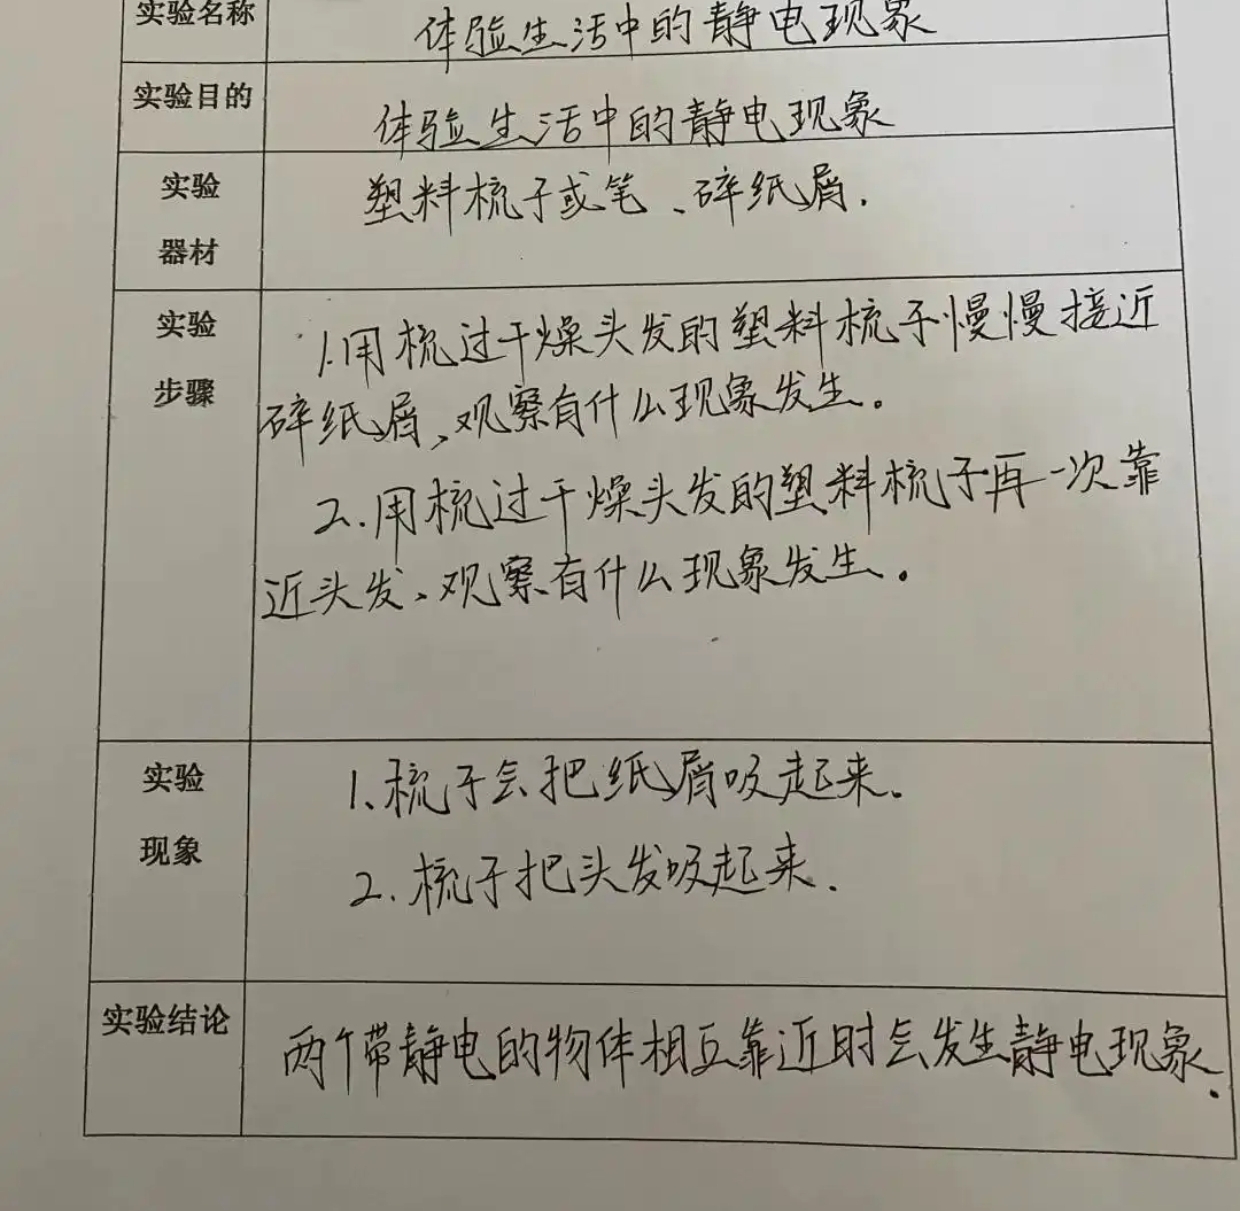 实验名称 体验生活中的静电现象
实验目的 体验生活中的静电现象
实验
器材
塑料梳子或笔、碎纸屑.
实验
步骤
1.用梳过干燥头发的塑料梳子慢慢接近
碎纸屑、观察有什么现象发生。
2.用梳过干燥头发的塑料梳子再一次靠
近头发、观察有什么现象发生。
实验
现象
1、梳子会把纸屑吸起来.
2.梳子把头发吸起来.
实验结论 两个带静电的物体相互靠近时会发生静电现象.